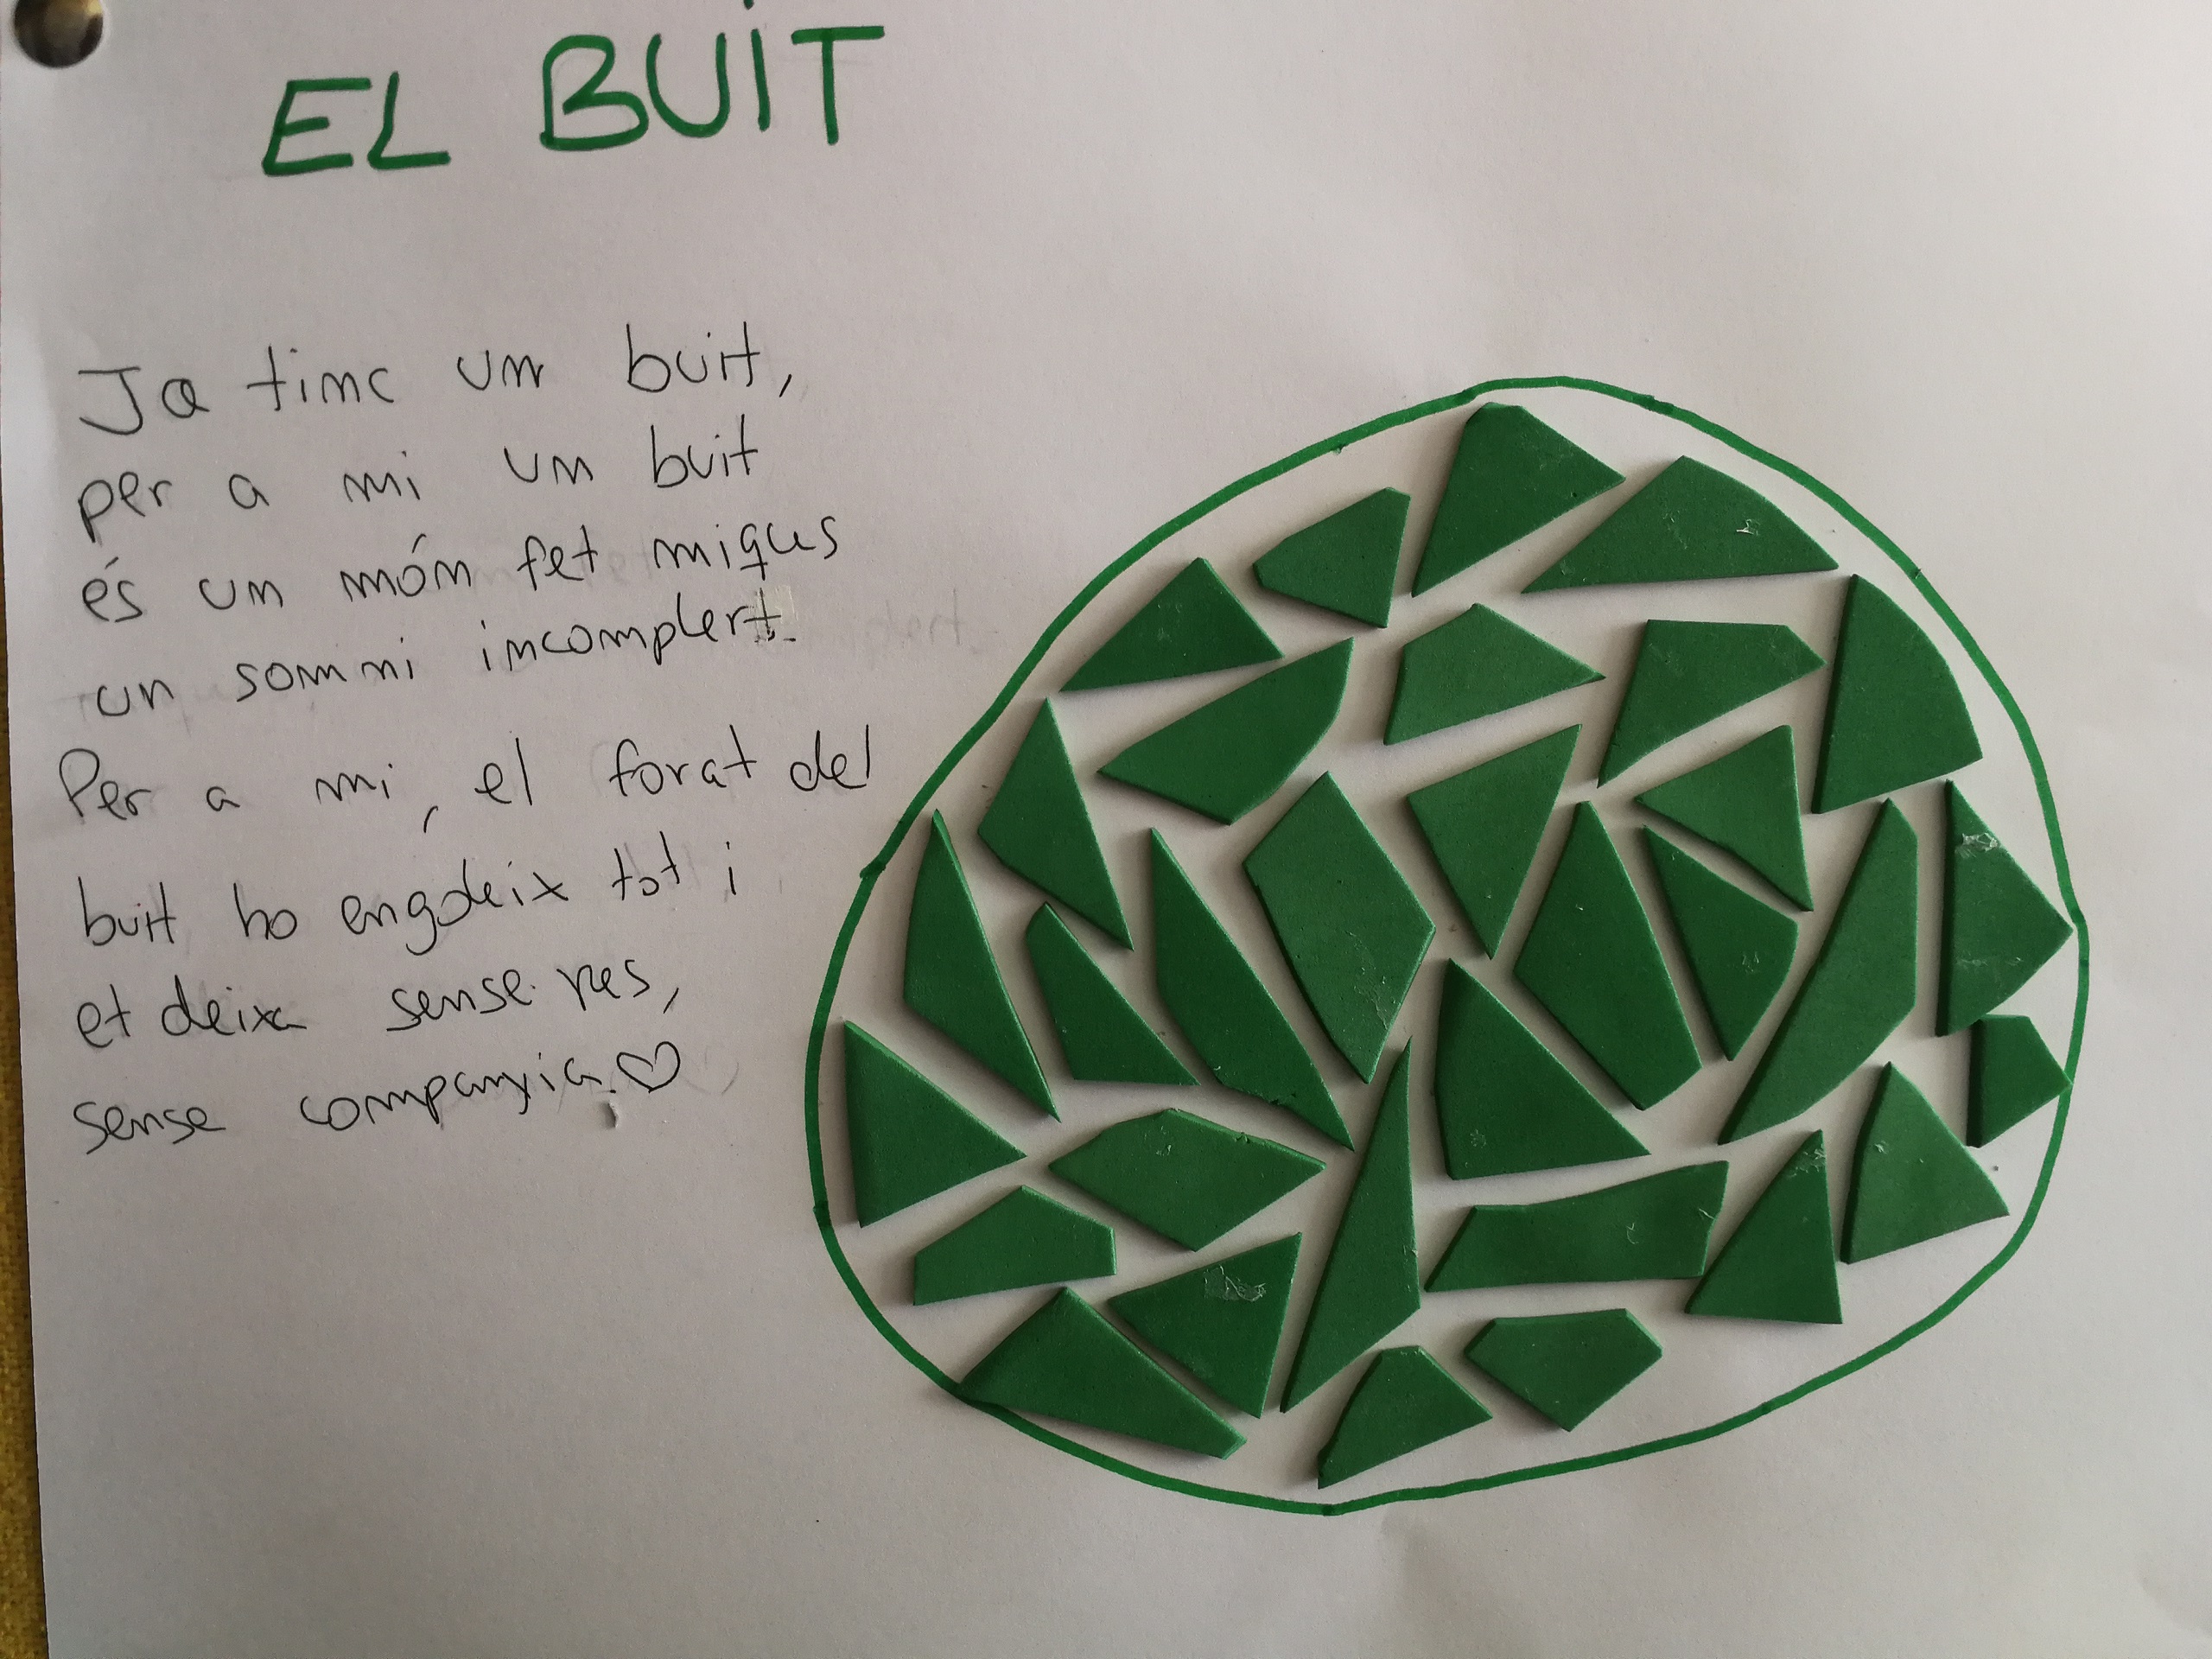 EL BUIT
Ja tinc un buit,
per a mi un buit
és un món fet miques
un somni incomplert.
Per a mi, el forat del
buit ho engoleix tot i
et deixa sense res,
sense companyia.